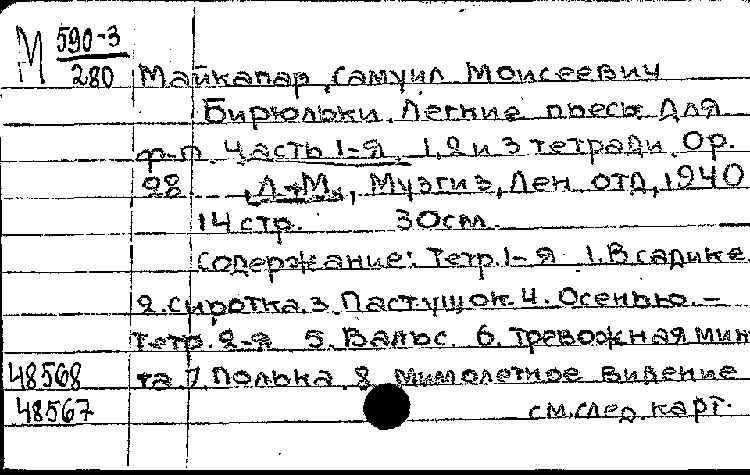 М 590-3
280 Майкапар, Самуил Моисеевич
Бирюльки. Легкие пьесы для
ф-п. Часть 1-я. 1, 2 и 3 тетради. Ор.
28. Л-М., Музгиз, Лен. отд, 1940
14 стр. 30см.
Содержание: Тетр. 1-я 1. В садике.
2. Сиротка. 3. Пастушок. 4. Осенью. -
Тетр. 2-я 5. Вальс. 6. Тревожная мин
48568 та 7. Полька. 8. Мимолетное видение
48567 см. след. карт.